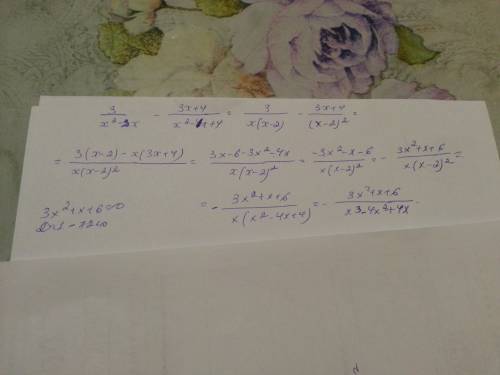 3/(x²-2x) - (3x+4)/(x²-4x+4) = 3/(x(x-2)) - (3x+4)/(x-2)² =
= (3(x-2)-x(3x+4))/(x(x-2)²) = (3x-6-3x²-4x)/(x(x-2)²) = (-3x²-x-6)/(x(x-2)²) = - (3x²+x+6)/(x(x-2)²) =
= - (3x²+x+6)/(x(x²-4x+4)) = - (3x²+x+6)/(x³-4x²+4x)
3x²+x+6=0